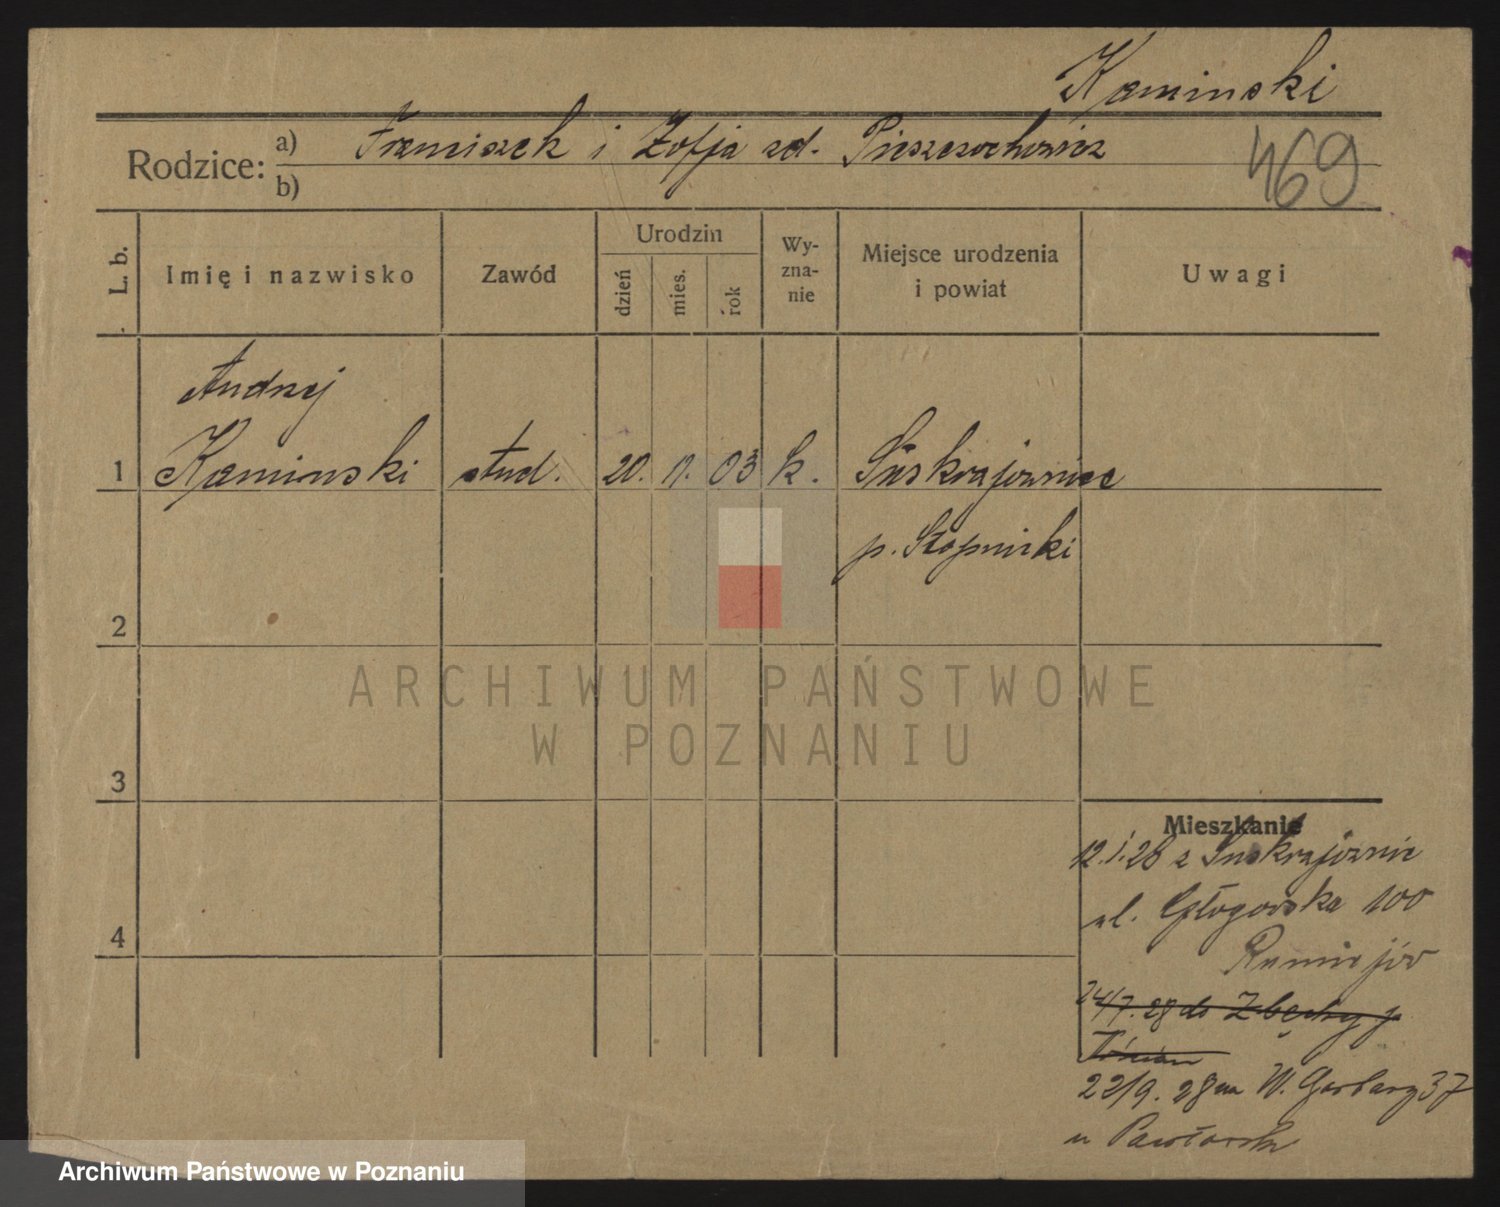 Kaminski
Rodzice: a) Franciszek i Zofja zd. Pieszczochowicz
b)
469
L. b.
Imię i nazwisko
Zawód
Urodzin
dzień
mies.
rok
Wy-
zna-
nie
Miejsce urodzenia
i powiat
Uwagi
Andrzej
1 Kaminski stud. 20. 11. 03 k. Suskrajowice
p. Stopnicki
2
3
4
Mieszkanie
12.1.28 z Suskrajowic
ul. Głogowska 100
24/7. 28 do Zbęchy p
22/9. 28 na W. Garbary 37
u
ARCHIWUM PAŃSTWOWE
W POZNANIU
Archiwum Państwowe w Poznaniu